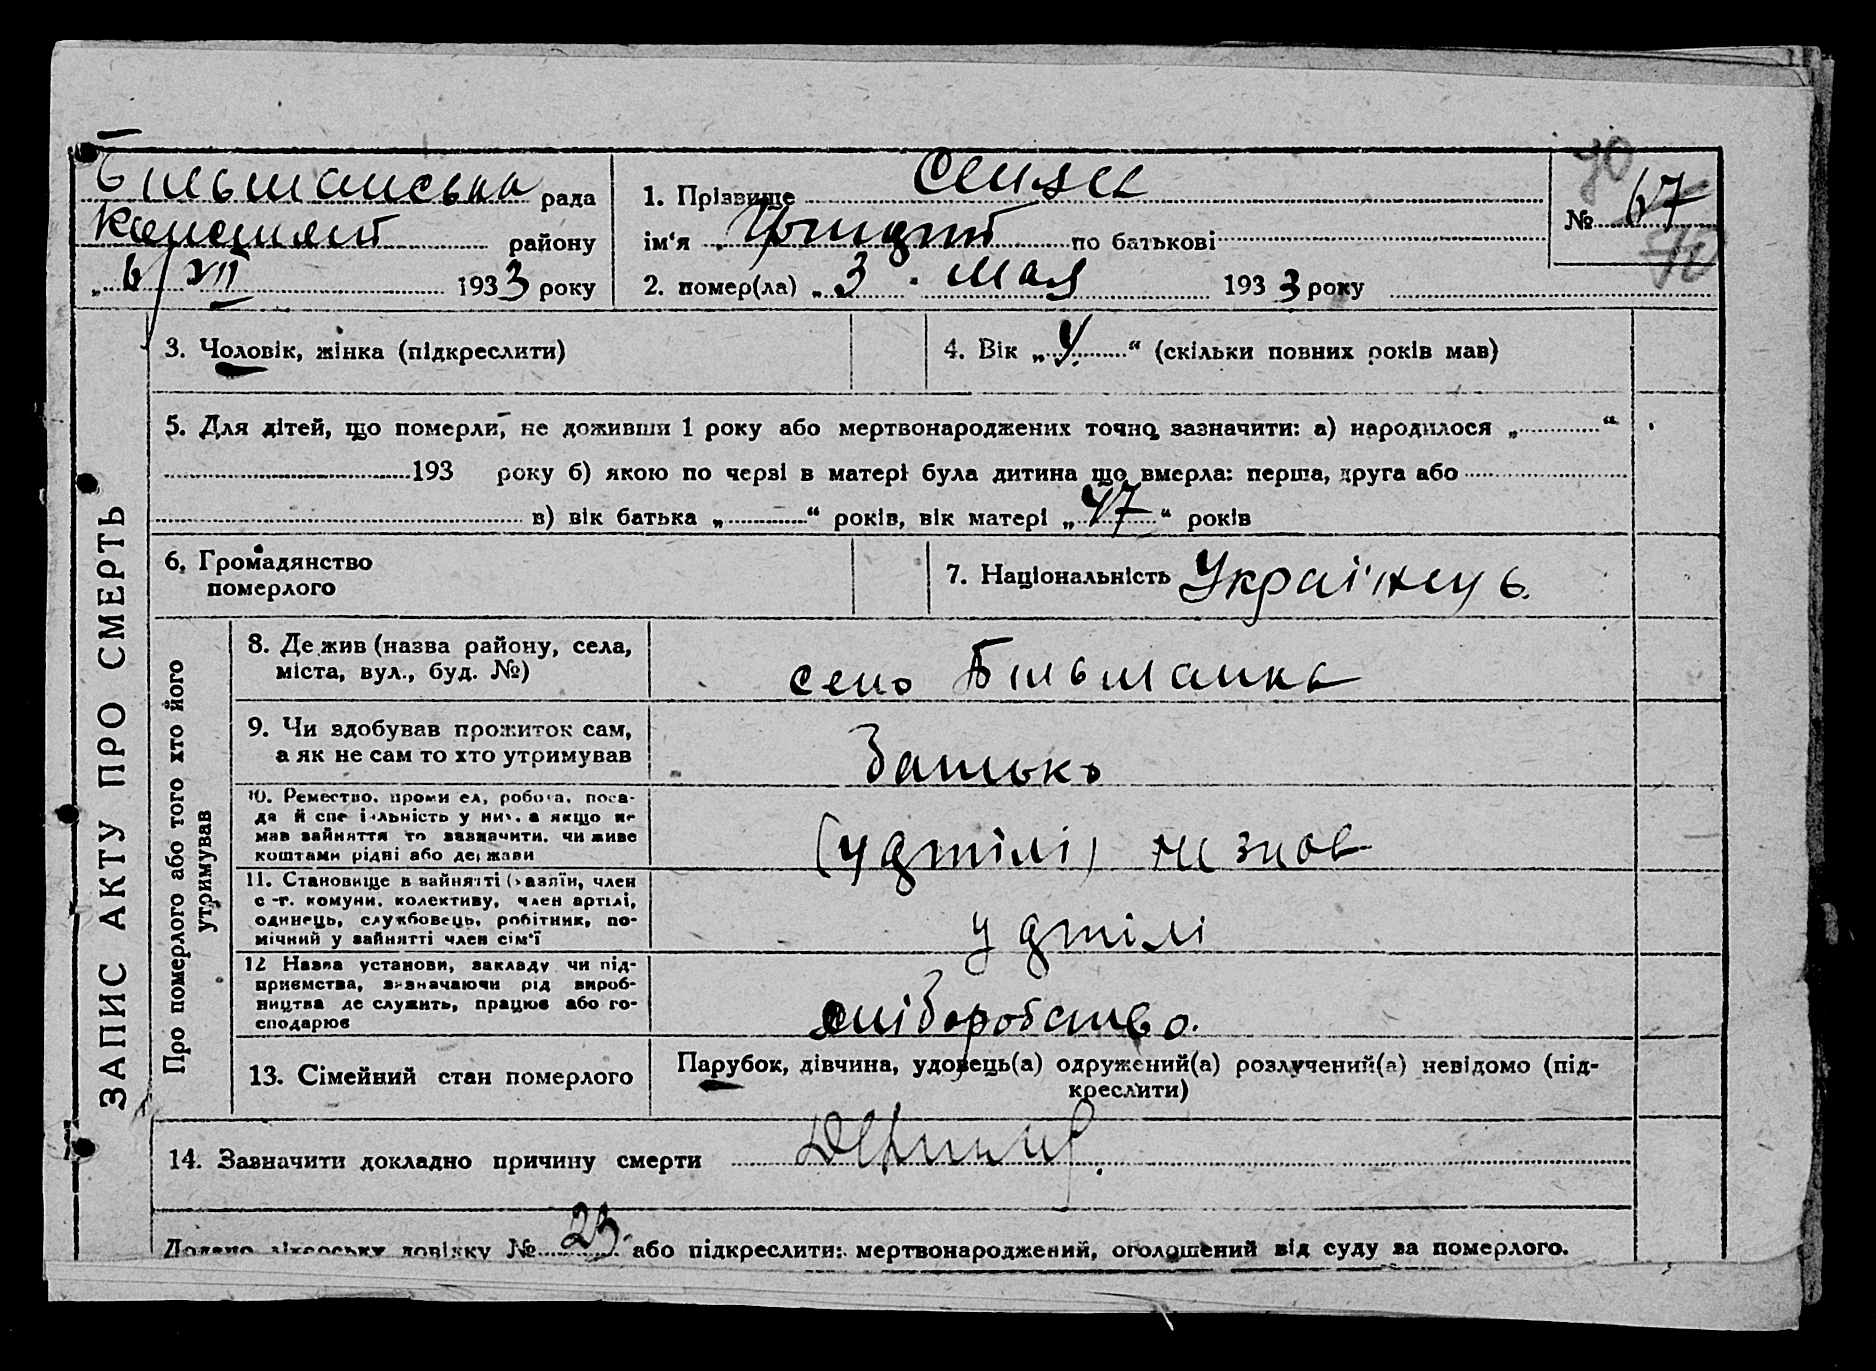 Більшанська рада
району
„ 6/VII 1933 року
1. Прізвище
ім'я по батькові
2. помер(ла) „ 3 . мая 1933 року
70
№ 67
70
ЗАПИС АКТУ ПРО СМЕРТЬ
3. Чоловік, жінка (підкреслити)
4. Вік „ 4. “ (скільки повних років мав)
5. Для дітей, що померли, не доживши 1 року або мертвонароджених точно зазначити: а) народилося „ “
193 року б) якою по черзі в матері була дитина що вмерла: перша, друга або
в) вік батька „ “ років, вік матері „ 47 “ років
6. Громадянство
померлого
7. Національність Українець.
Про померлого або того хто його
утримував
8. Де жив (назва району, села,
міста, вул., буд. №)
село Більшанка
9. Чи здобував прожиток сам,
а як не сам то хто утримував
Батько
10. Ремество, промисел, робота, поса-
да й спеціяльність у них, а якщо не
мав зайняття то зазначити, чи живе
коштами рідні або держави
11. Становище в зайнятті (хазяїн, член
с.-г. комуни, колективу, член артілі,
одинець, службовець, робітник, по-
мічний у зайнятті член сім'ї
12 Назва установи, закладу чи під-
приємства, визначаючи рід вироб-
ництва де служить, працює або го-
сподарює
хліборобство.
13. Сімейний стан померлого
Парубок, дівчина, удовець(а) одружений(а) розлучений(а) невідомо (під-
креслити)
14. Зазначити докладно причину смерти
Додано лікарську довідку № 23 або підкреслити: мертвонароджений, оголошений від суду за померлого.